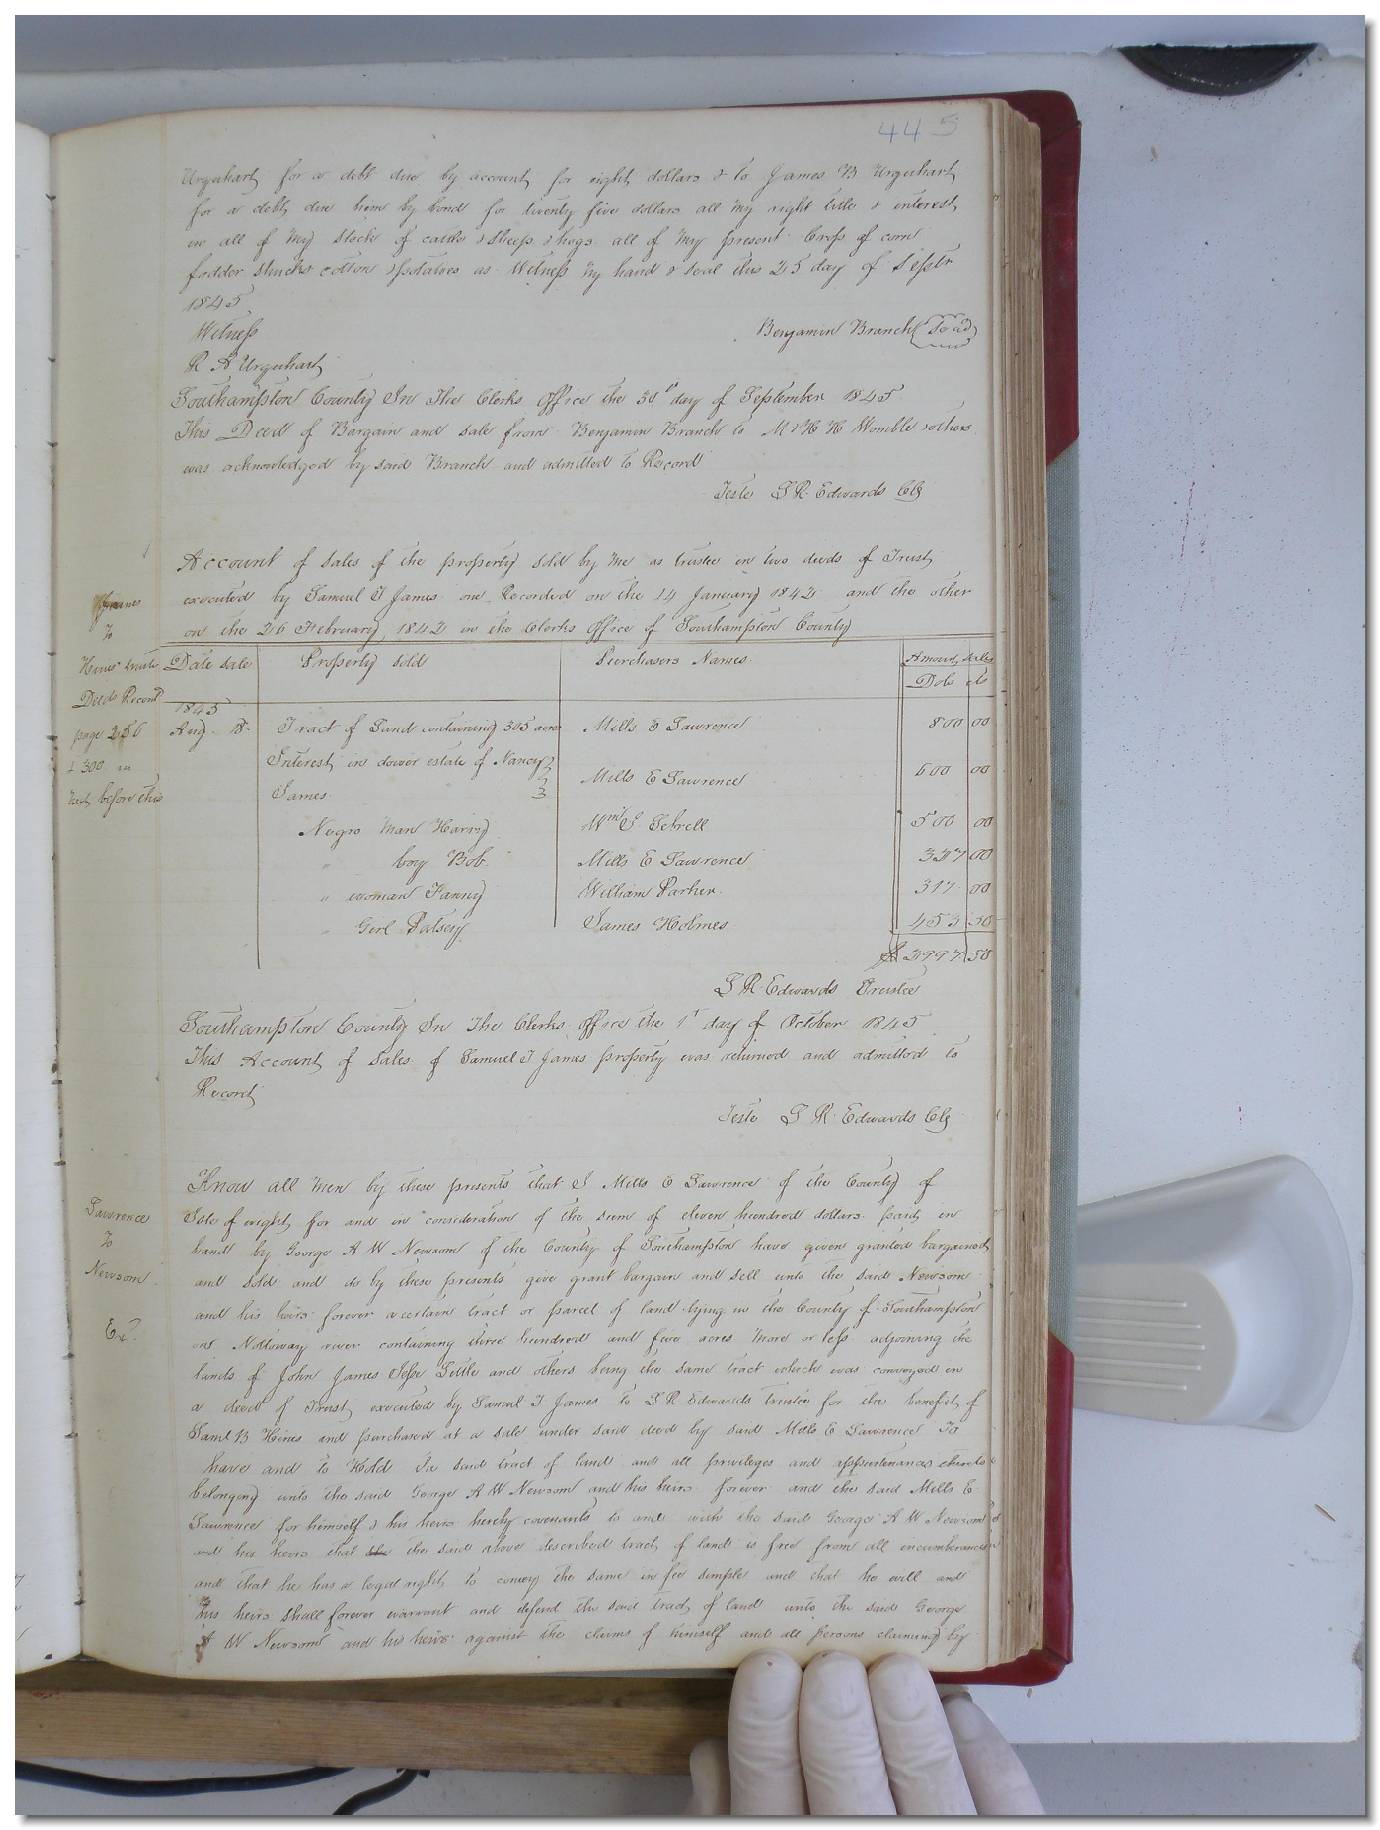 445
Urquhart for a debt due by account for eight dollars & to James B Urquhart
for a debt due him by bond for twenty five dollars all my right title & interest
in all of my stock of cattle & sheep & hogs all of my present Crop of corn
fodder shucks cotton & potatoes as Witness my hand & seal this 25 day of Septr
1845
Witness
Benjamin Branch Seal
R A Urquhart
Southampton County In The Clerks Office the 30th day of September 1845
This Deed of Bargain and sale from Benjamin Branch to M & H H Womble & others
was acknowledged by said Branch and admitted to Record
Teste L R Edwards Clk
Account of sales of the property sold by me as trustee in two deeds of Trust
executed by Samuel T James one Recorded on the 14 January 1842 and the other
on the 26 February 1842 in the Clerks Office of Southampton County
James
To
Hines
Deeds Record
page 256
& 300 in
next before this
Date sale Property sold Purchasers Names Amount sales
Dols cts
1845
Aug 18 Tract of Land containing 305 acres Mills E Lawrence 800 00
Interest in dower estate of Nancy
James Mills E Lawrence 600 00
Negro Man Harry Wm G Sebrell 500 00
" boy Bob Mills E Lawrence 327 00
" woman Fanny William Parker 317 00
" Girl Patsey James Holmes 453 50
$ 2997 50
L R Edwards Trustee
Southampton County In The Clerks Office the 1st day of October 1845
This Account of Sales of Samuel T James property was returned and admitted to
Record
Teste L R Edwards Clk
Lawrence
To
Newsom
Exd
Know all men by these presents that I Mills E Lawrence of the County of
Isle of wight for and in consideration of the sum of eleven hundred dollars paid in
hand by George A W Newsom of the County of Southampton have given granted bargained
and sold and do by these presents give grant bargain and sell unto the said Newsom
and his heirs forever a certain tract or parcel of land lying in the County of Southampton
on Nottoway river containing three hundred and five acres more or less adjoining the
lands of John James Jesse Little and others being the same tract which was conveyed in
a deed of Trust executed by Samuel T James to L R Edwards trustee for the benefit of
Saml B Hines and purchased at a sale under said deed by said Mills E Lawrence To
have and to Hold the said tract of land and all privileges and appurtenances thereto
belonging unto the said George A W Newsom and his heirs forever and the said Mills E
Lawrence for himself & his heirs hereby covenants to and with the said George A W Newsom
and his heirs that the said above described tract of land is free from all encumberances
and that he has a legal right to convey the same in fee simple and that he will and
his heirs shall forever warrant and defend the said tract of land unto the said George
A W Newsom and his heirs against the claims of himself and all persons claiming by